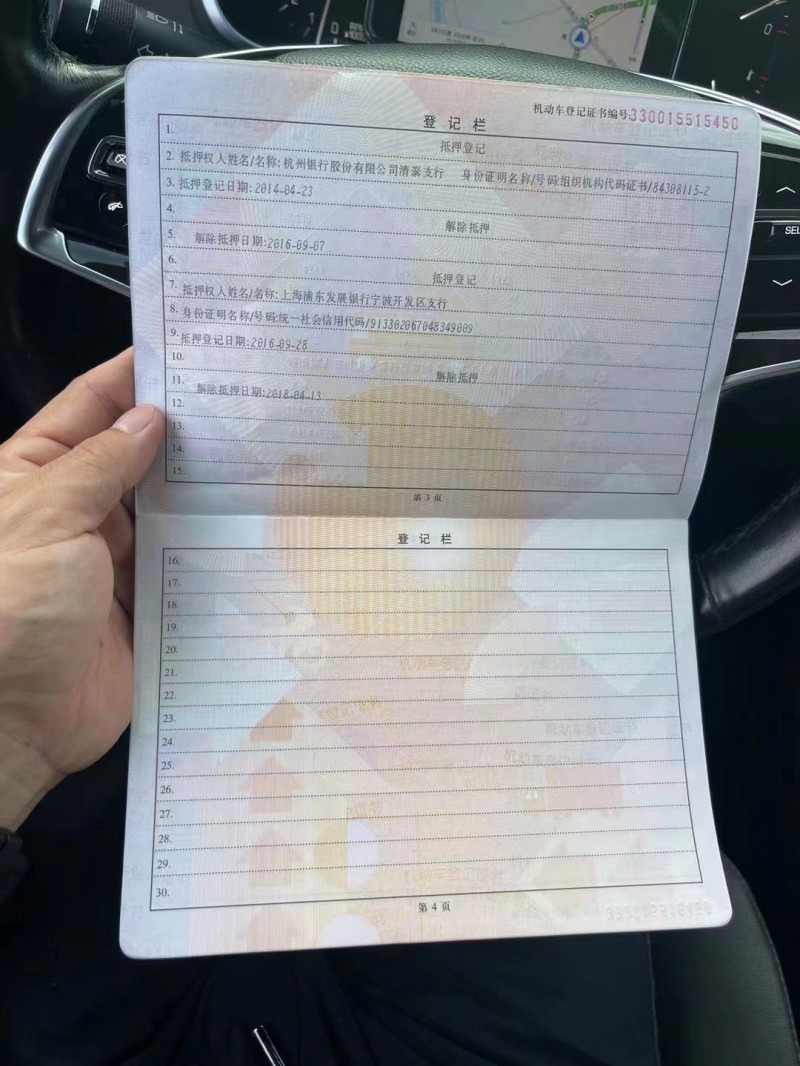 机动车登记证书编号330015515450
登记栏
1. 抵押登记
2. 抵押权人姓名/名称:杭州银行股份有限公司清泰支行 身份证明名称/号码:组织机构代码证书/84308115-2
3. 抵押登记日期:2014-04-23
4. 解除抵押
5. 解除抵押日期:2016-09-07
6. 抵押登记
7. 抵押权人姓名/名称:上海浦东发展银行宁波开发区支行
8. 身份证明名称/号码:统一社会信用代码/913302067048349009
9. 抵押登记日期:2016-09-28
10. 解除抵押
11. 解除抵押日期:2018-04-13
12.
13.
14.
15.
第 3 页
登记栏
16.
17.
18.
19.
20.
21.
22.
23.
24.
25.
26.
27.
28.
29.
30.
第 4 页
SEL